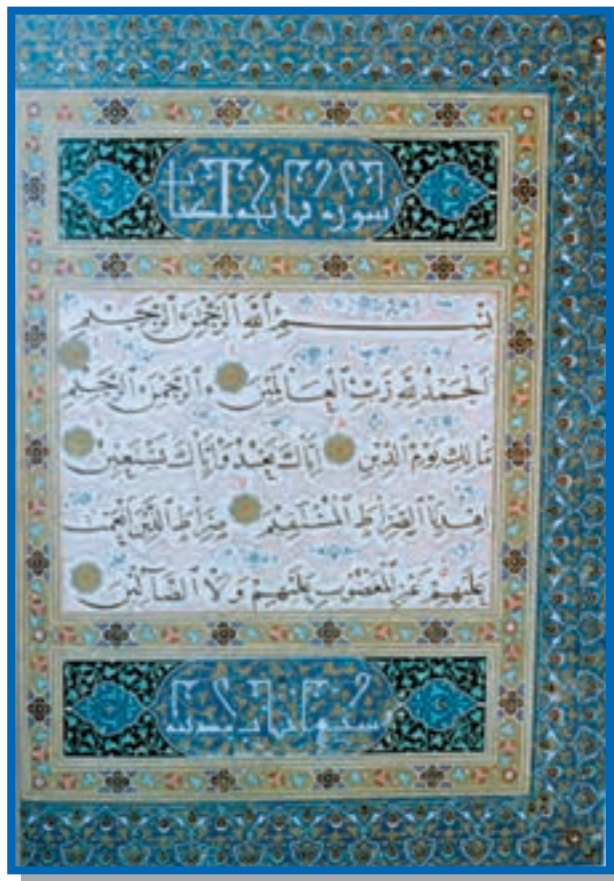 سورة فاتحة الكتاب
بسم الله الرحمن الرحيم
الحمد لله رب العالمين الرحمن الرحيم
مالك يوم الدين اياك نعبد واياك نستعين
اهدنا الصراط المستقيم صراط الذين انعمت
عليهم غير المغضوب عليهم ولا الضالين
سبع ايات